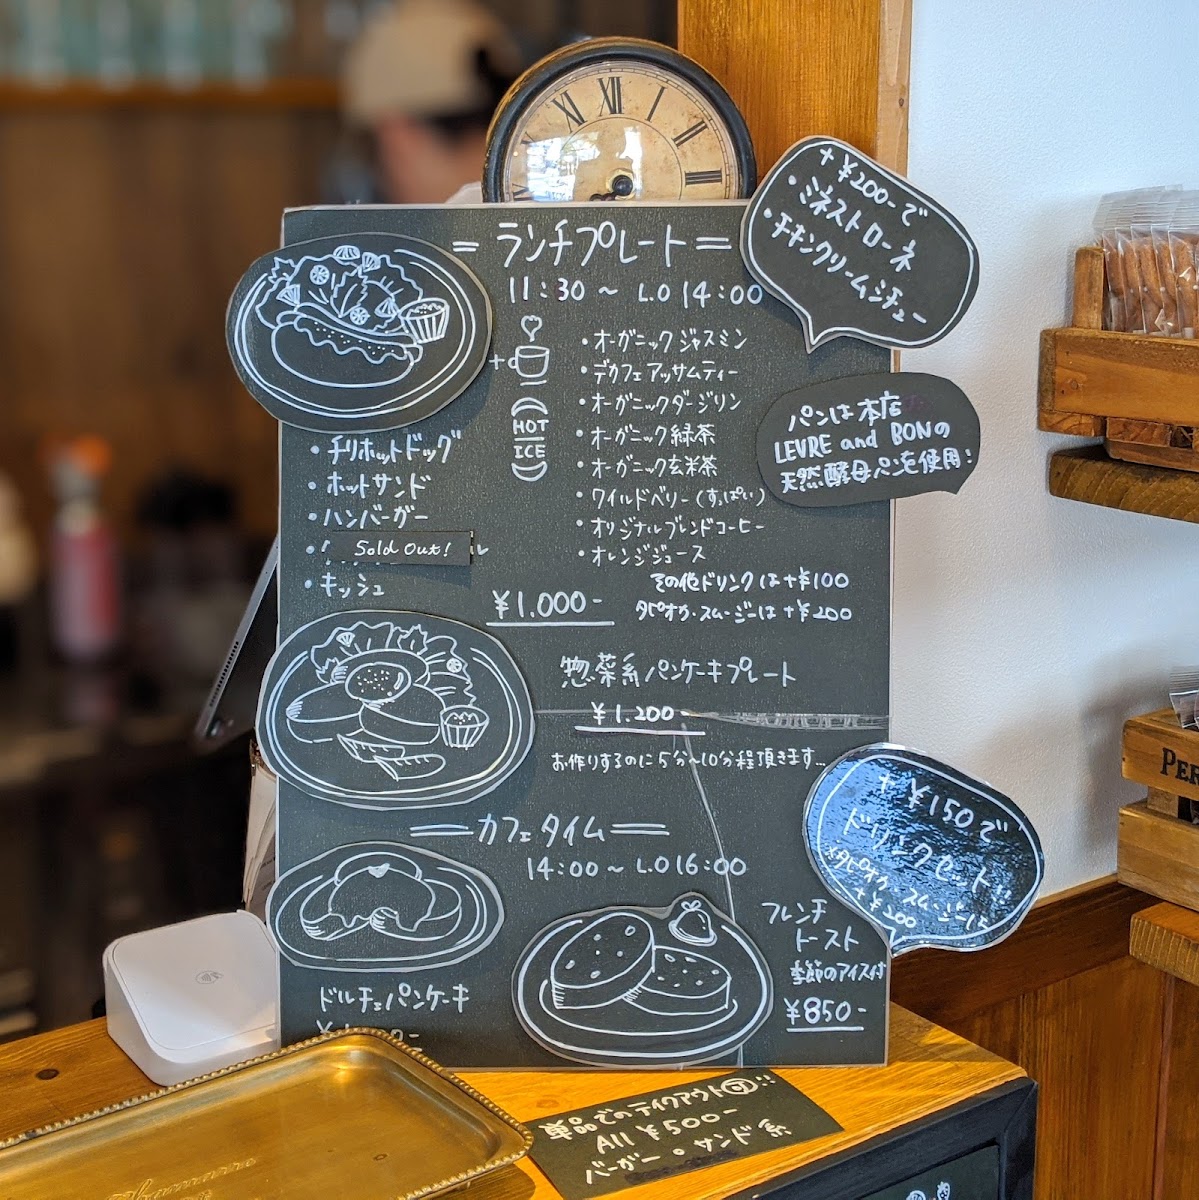 XI XII I II III
+¥200-で
・ミネストローネ
・チキンクリームシチュー
=ランチプレート=
11:30 ~ L.O 14:00
・オーガニックジャスミン
・デカフェアッサムティー
・オーガニックダージリン
・オーガニック緑茶
・オーガニック玄米茶
・ワイルドベリー(すっぱい)
・オリジナルブレンドコーヒー
・オレンジジュース
+
HOT
ICE
パンは本店
LEVRE and BONの
天然酵母パンを使用:
・チリホットドッグ
・ホットサンド
・ハンバーガー
Sold out!
・キッシュ
¥1.000-
その他ドリンクは+¥100
タピオカ・スムージーは+¥200
惣菜系パンケーキプレート
¥1.200-
お作りするのに5分~10分程頂きます...
=カフェタイム=
14:00 ~ L.O 16:00
+¥150で
ドリンクセット!!
※タピオカ・スムージーは
+¥200
フレンチ
トースト
季節のアイス付
¥850-
ドルチェパンケーキ
単品でのテイクアウト可!!
All ¥500-
バーガー・サンド系
PER